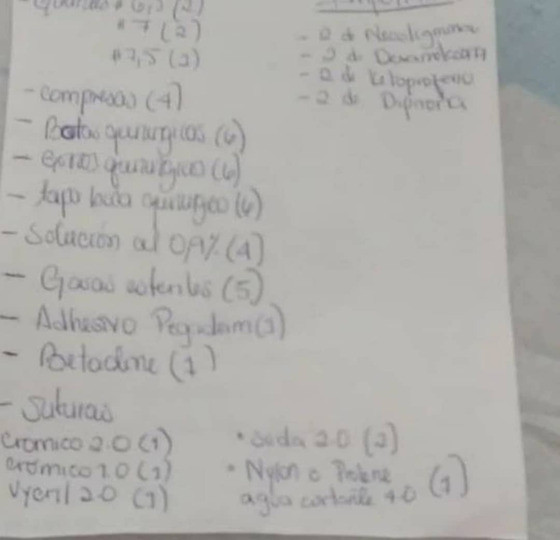 #6,5 (2)
#7 (2)
#7,5 (2)
- compresas (4)
- Botas quirurgicas (6)
- gorros quirurgicos (6)
- tapa boca quirurgico (6)
- Solución al 0,9% (4)
- Gasas esteriles (5)
- Adhesivo
- Betadine (1)
- Suturas
cromico 2.0 (1)
cromico 1.0 (1)
Vycril 2.0 (1)
- 2 de
- 2 de
- 2 de Ketoprofeno
- 2 de Dipirona
• seda 2.0 (2)
• Nylon o Prolene (1)
aguja cortante 4.0